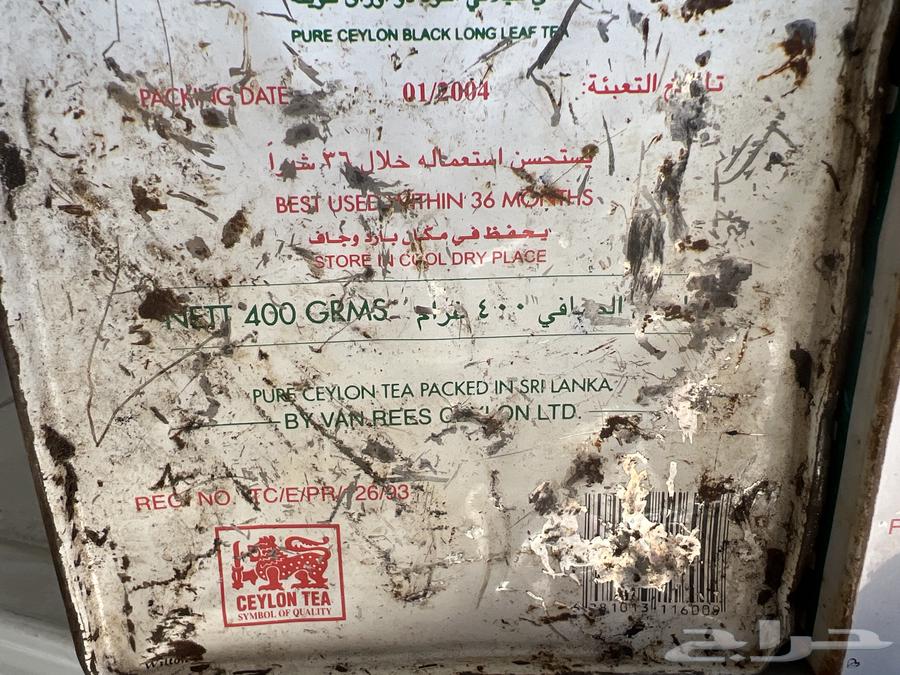 PURE CEYLON BLACK LONG LEAF TEA
PACKING DATE 01/2004 تاريخ التعبئة:
يستحسن استعماله خلال ٣٦ شهراً
BEST USED WITHIN 36 MONTHS
يحفظ في مكان بارد وجاف
STORE IN COOL DRY PLACE
NETT 400 GRMS الصافي ٤٠٠ غرام
PURE CEYLON TEA PACKED IN SRI LANKA
BY VAN REES CEYLON LTD.
REG. NO. TC/E/PR/ 26/93
CEYLON TEA
SYMBOL OF QUALITY
حراج